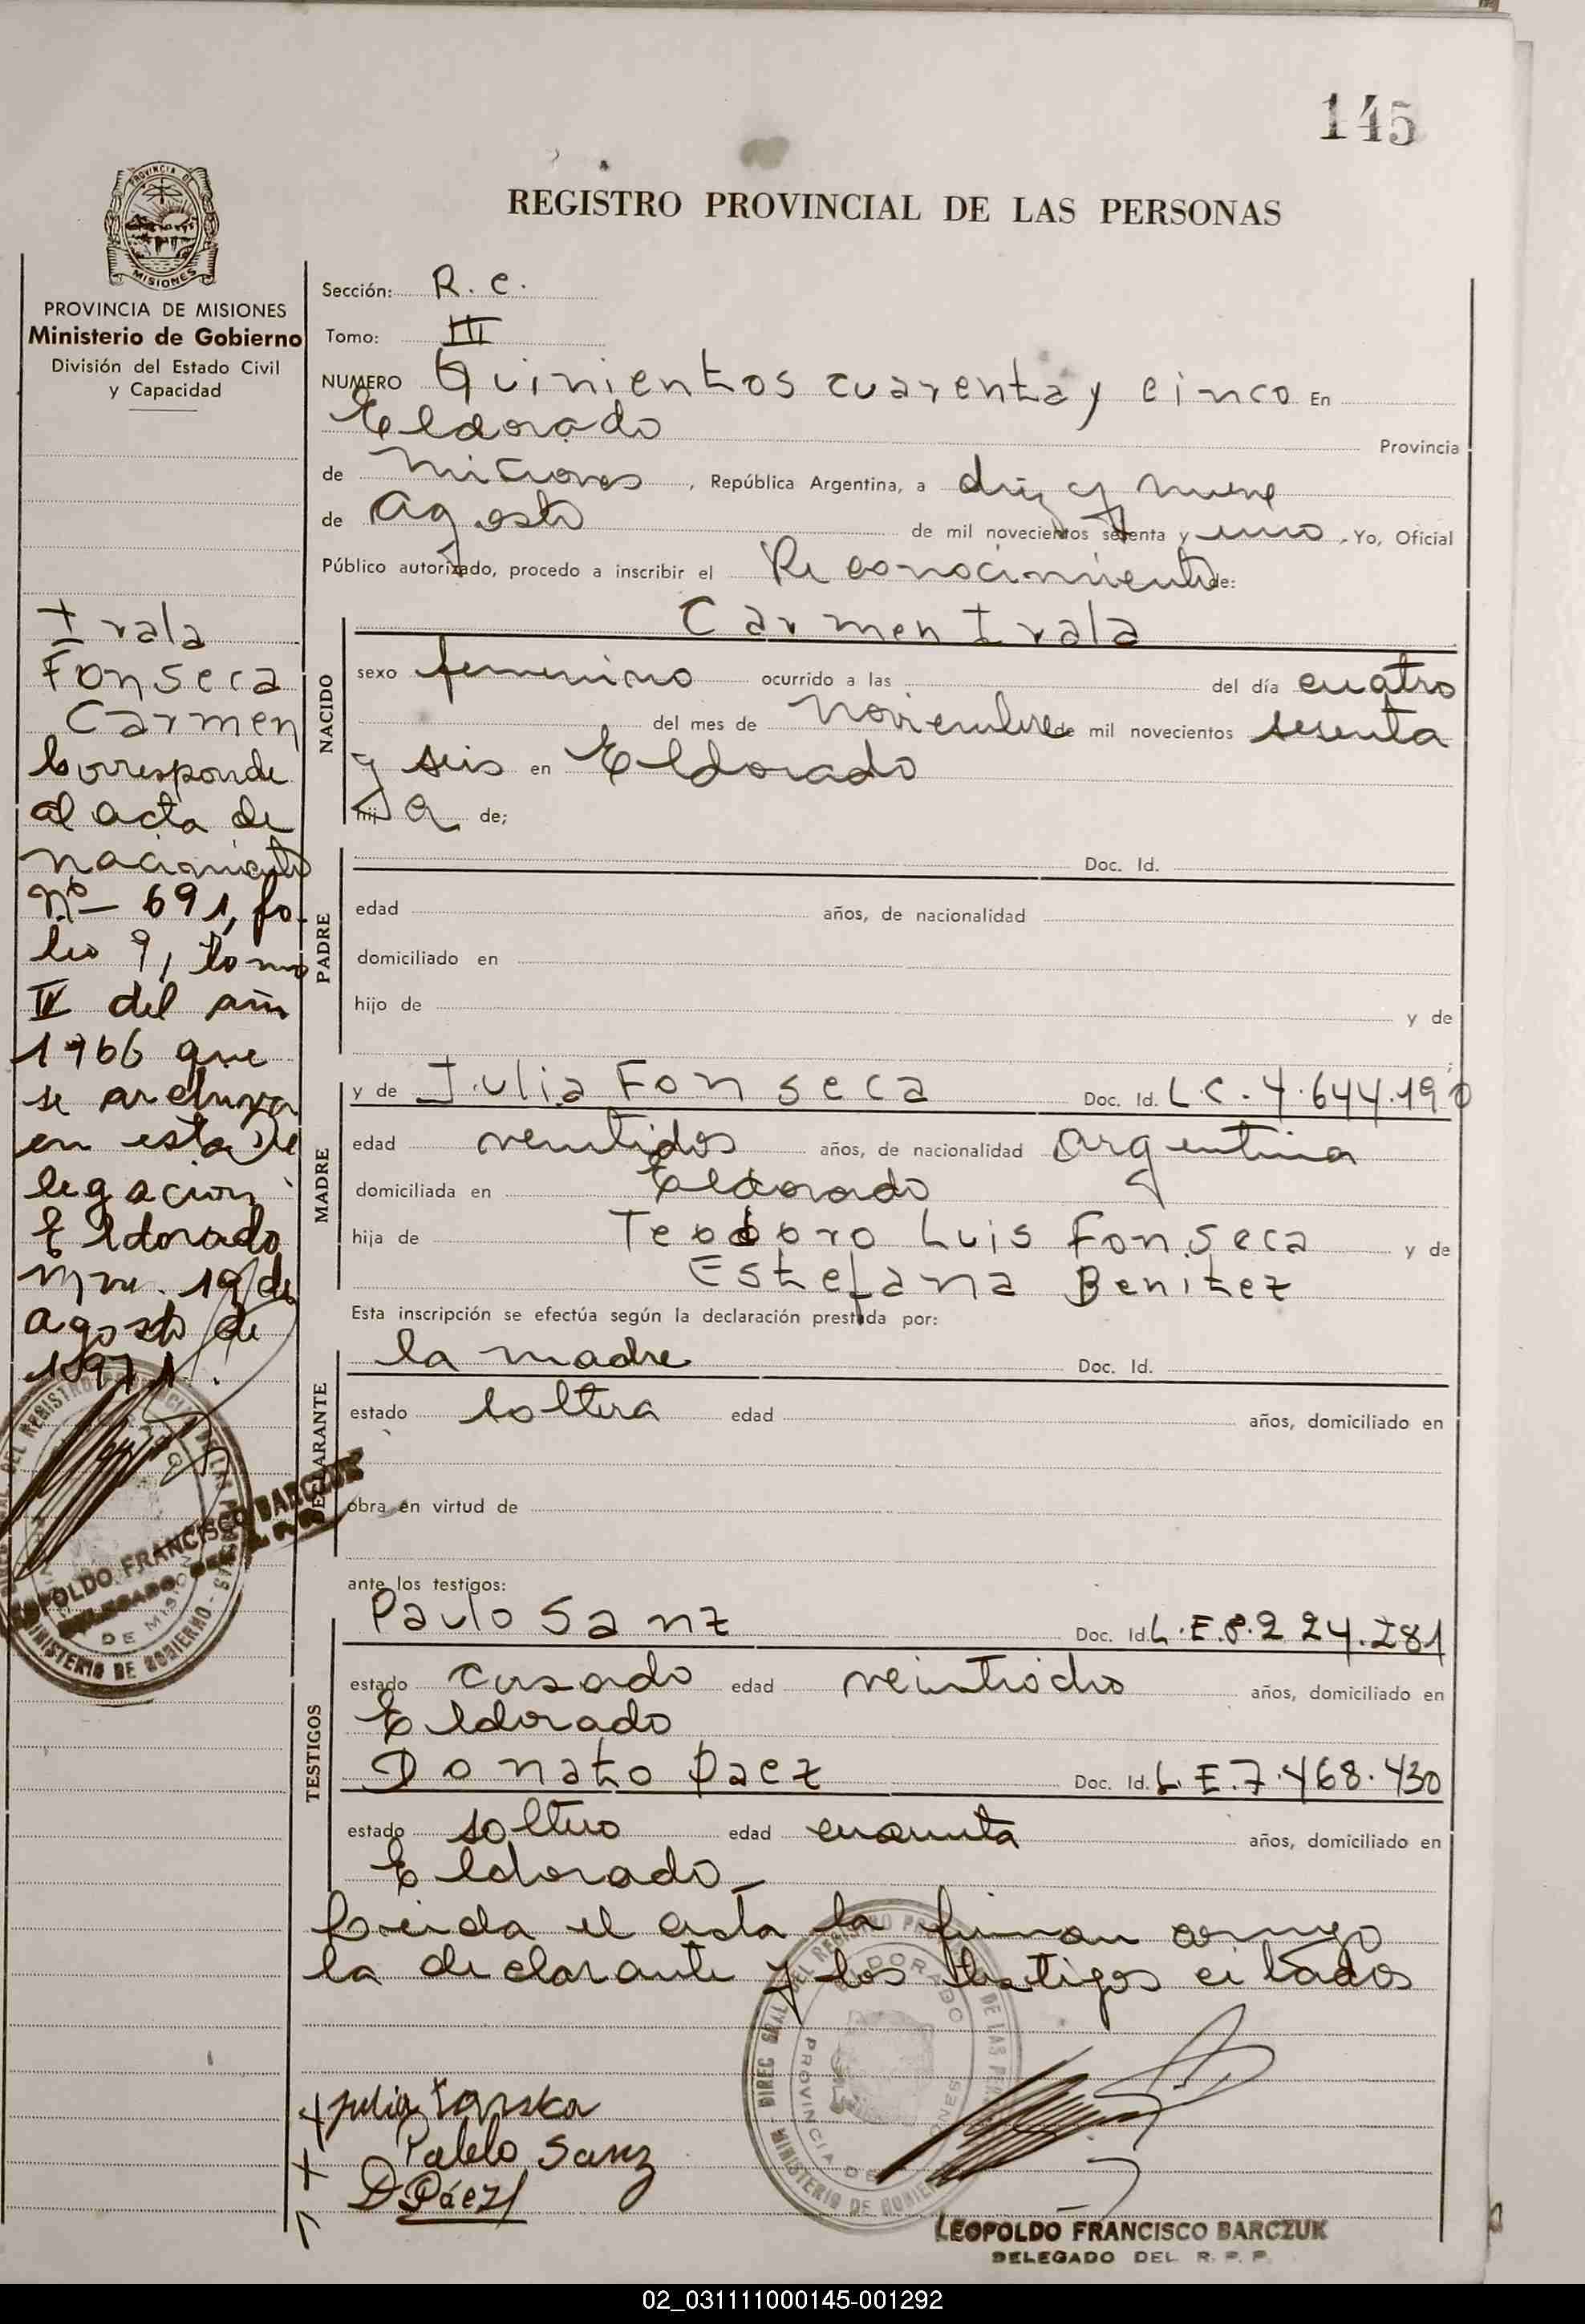 145
REGISTRO PROVINCIAL DE LAS PERSONAS
PROVINCIA DE MISIONES
Ministerio de Gobierno
División del Estado Civil
y Capacidad
Sección: R. C.
Tomo: III
NUMERO Quinientos cuarenta y cinco En
Eldorado Provincia
de Misiones, República Argentina, a diez y nueve
de Agosto de mil novecientos setenta y uno, Yo, Oficial
Público autorizado, procedo a inscribir el Reconocimiento de:
Carmen Irala
NACIDO
sexo femenino ocurrido a las del día cuatro
del mes de Noviembre de mil novecientos sesenta
y seis en Eldorado
hij a de;
PADRE
Doc. Id.
edad años, de nacionalidad
domiciliado en
hijo de y de
MADRE
y de Julia Fonseca Doc. Id. L.C. 4.644.190
edad veintidos años, de nacionalidad Argentina
domiciliada en Eldorado
hija de Teodoro Luis Fonseca y de
Estefana Benitez
Esta inscripción se efectúa según la declaración prestada por:
DECLARANTE
la madre Doc. Id.
estado soltera edad años, domiciliado en
obra en virtud de
ante los testigos:
TESTIGOS
Paulo Sanz Doc. Id. L.E. 8.224.281
estado casado edad veintiocho años, domiciliado en
Eldorado
Donato Paez Doc. Id. L.E. 7.468.430
estado soltero edad cuarenta años, domiciliado en
Eldorado
Leida el acta la firman conmigo
la declarante y los testigos citados
Irala
Fonseca
Carmen
Corresponde
al acta de
nacimiento
nº 691, fo-
lio 9, tomo
IV del año
1966 que
se archiva
en esta De
legación
Eldorado
Mnes. 19 de
agosto de
1971.
LEOPOLDO FRANCISCO BARCZUK
DELEGADO DEL R. P. P.
MINISTERIO DE GOBIERNO
Julia
Pablo Sanz
D Páez
DIREC. GRAL. DEL REGISTRO DE LAS
ELDORADO
PROVINCIA DE
MINISTERIO DE GOBIERNO
LEOPOLDO FRANCISCO BARCZUK
DELEGADO DEL R. P. P.
02_031111000145-001292